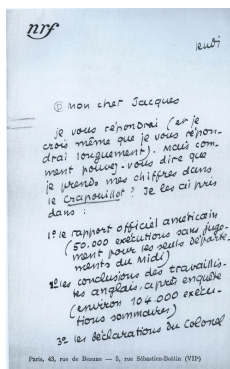 nrf
jeudi
Mon cher Jacques
je vous répondrai (et je
crois même que je vous répon-
drai longuement). Mais com-
ment pouvez-vous dire que
je prends mes chiffres dans
le Crapouillot? Je les ai pris
dans :
1º le rapport officiel américain
(50.000 exécutions sans juge-
ment pour les seuls départe-
ments du Midi)
2º les conclusions des travaillis-
tes anglais, après enquête
(environ 104.000 exécu-
tions sommaires)
3º les déclarations du Colonel
Paris, 43, rue de Beaune — 5, rue Sébastien-Bottin (VIIº)